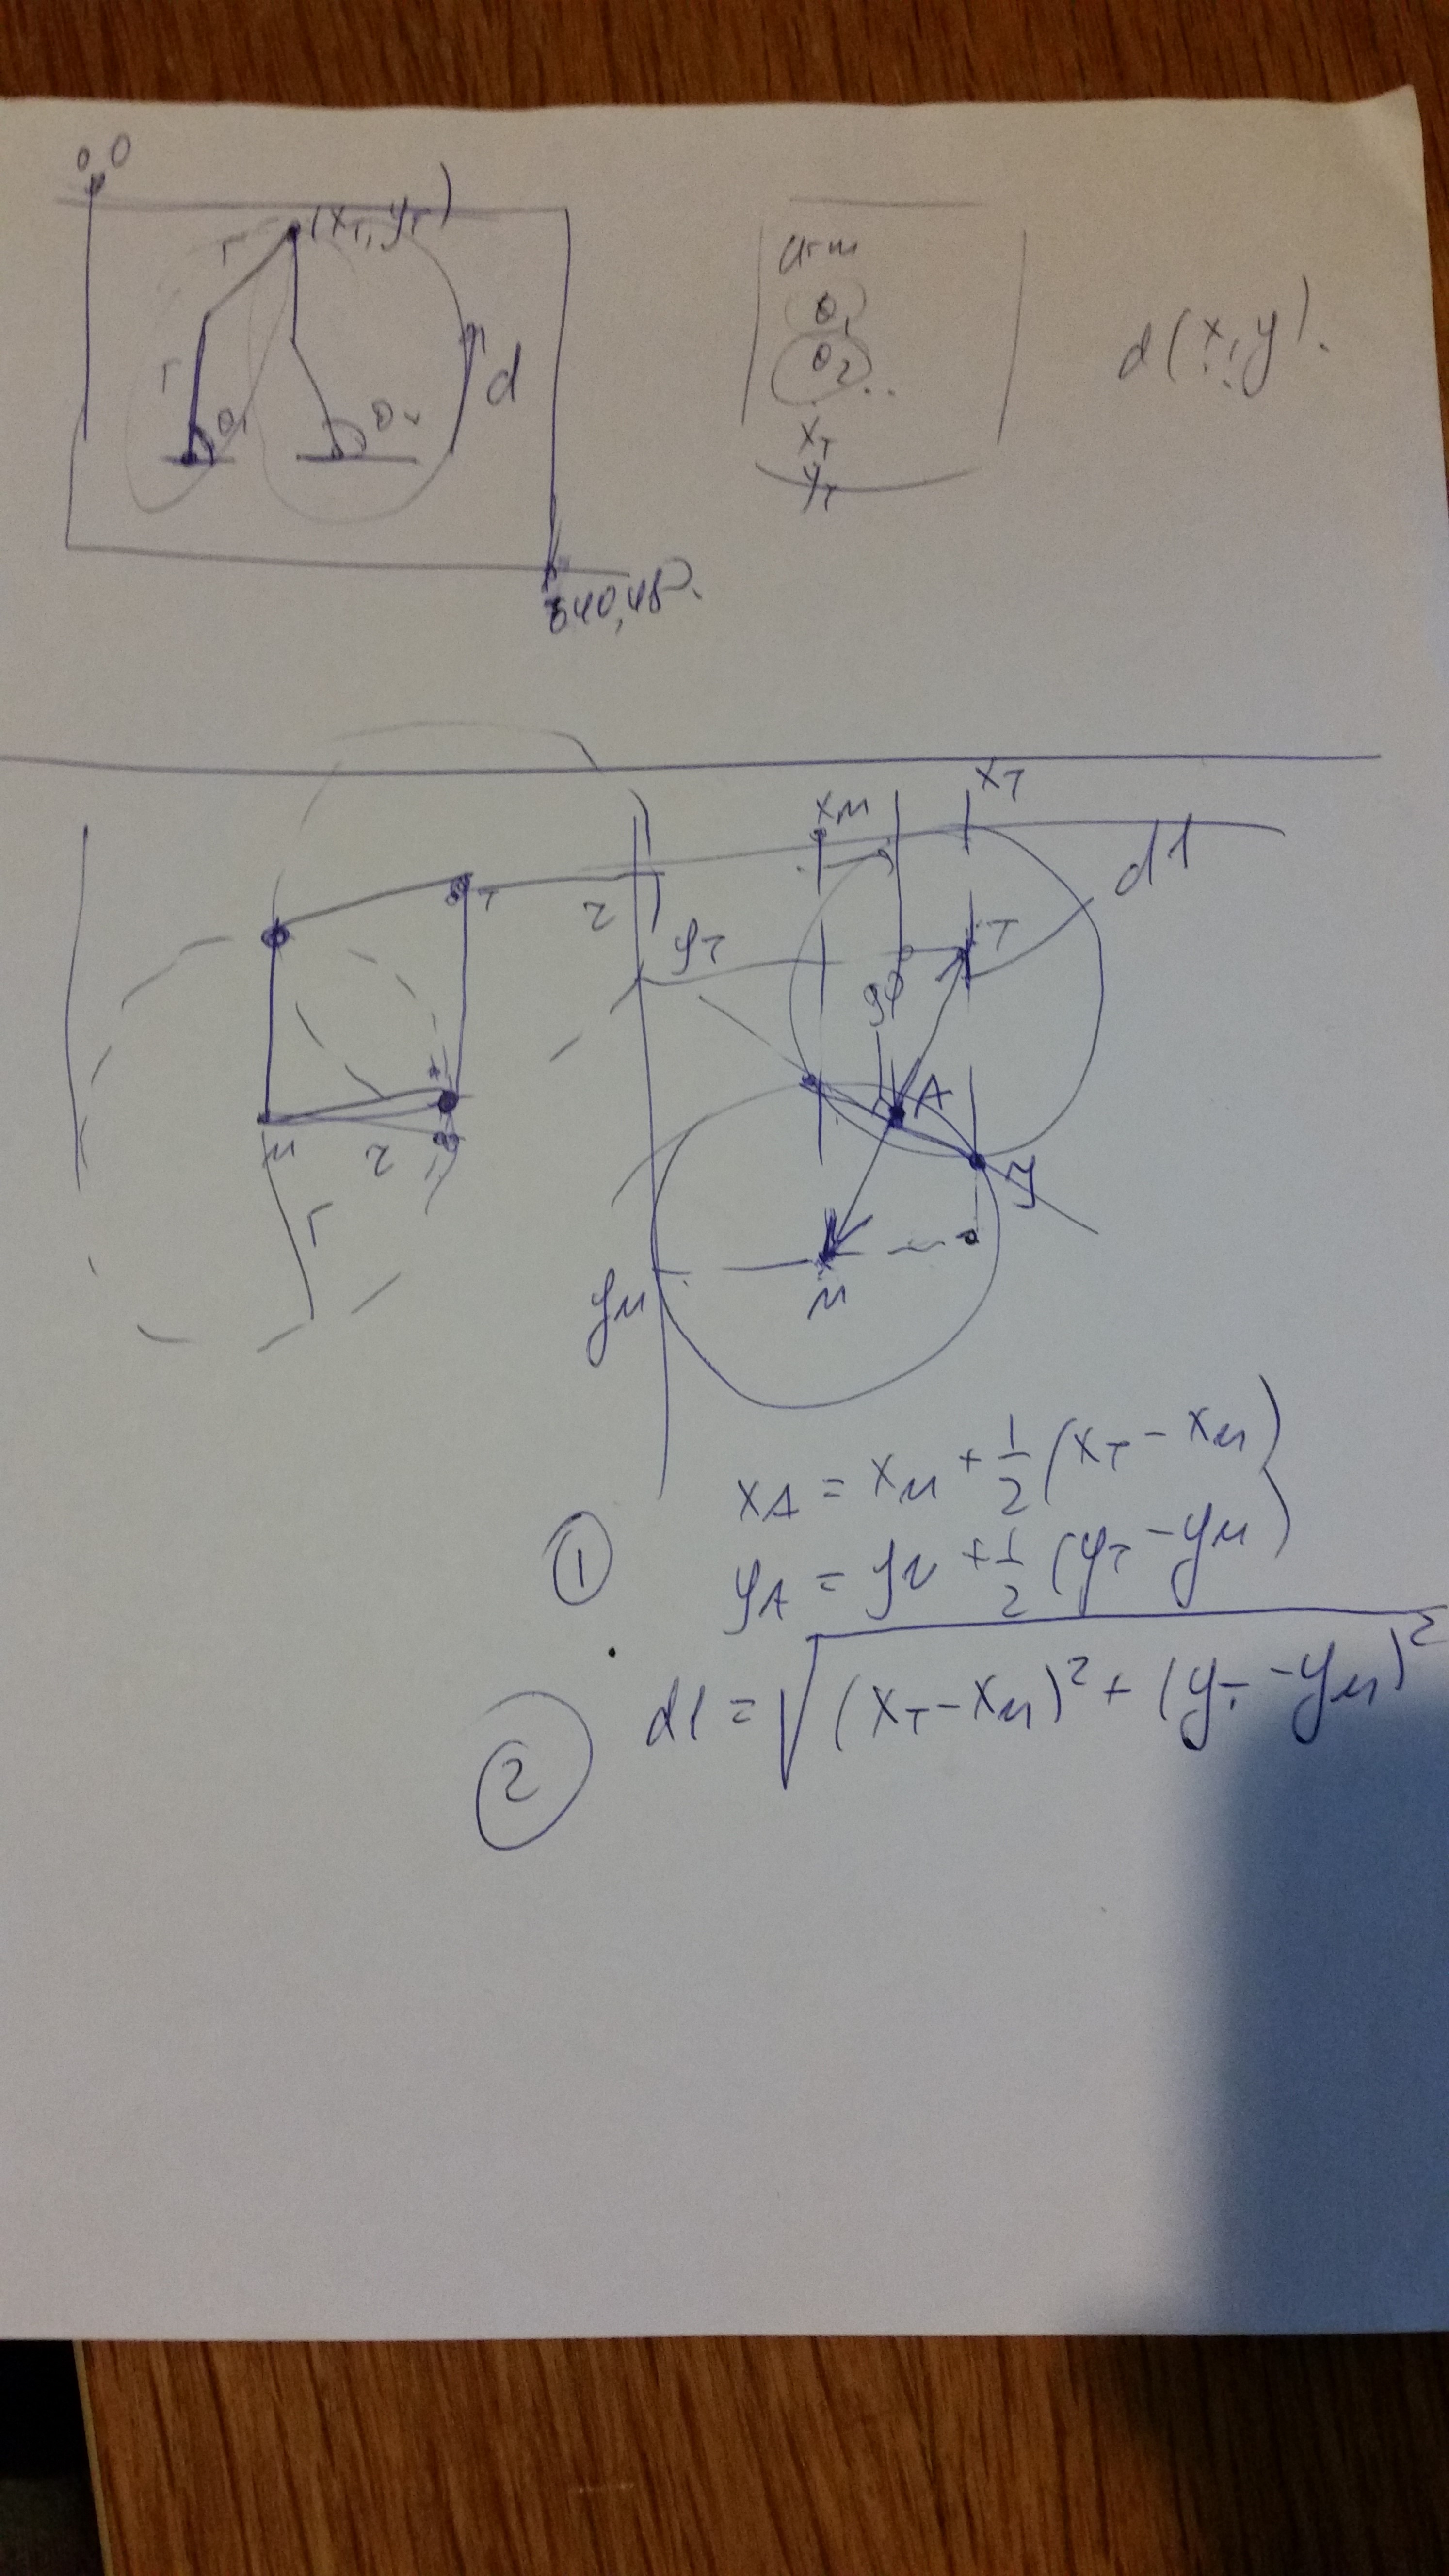 0,0
(xT, yT)
r
r
θ1
θ2
d
640,480.
arm
θ1
θ2..
xT
yT
d(x,y).
xM
xT
d1
T
r
yT
T
90
A
J
M
r
r
yM
M
① xA = xM + 1/2 (xT - xM)
yA = yM + 1/2 (yT - yM)
② d1 = √(xT - xM)² + (yT - yM)²